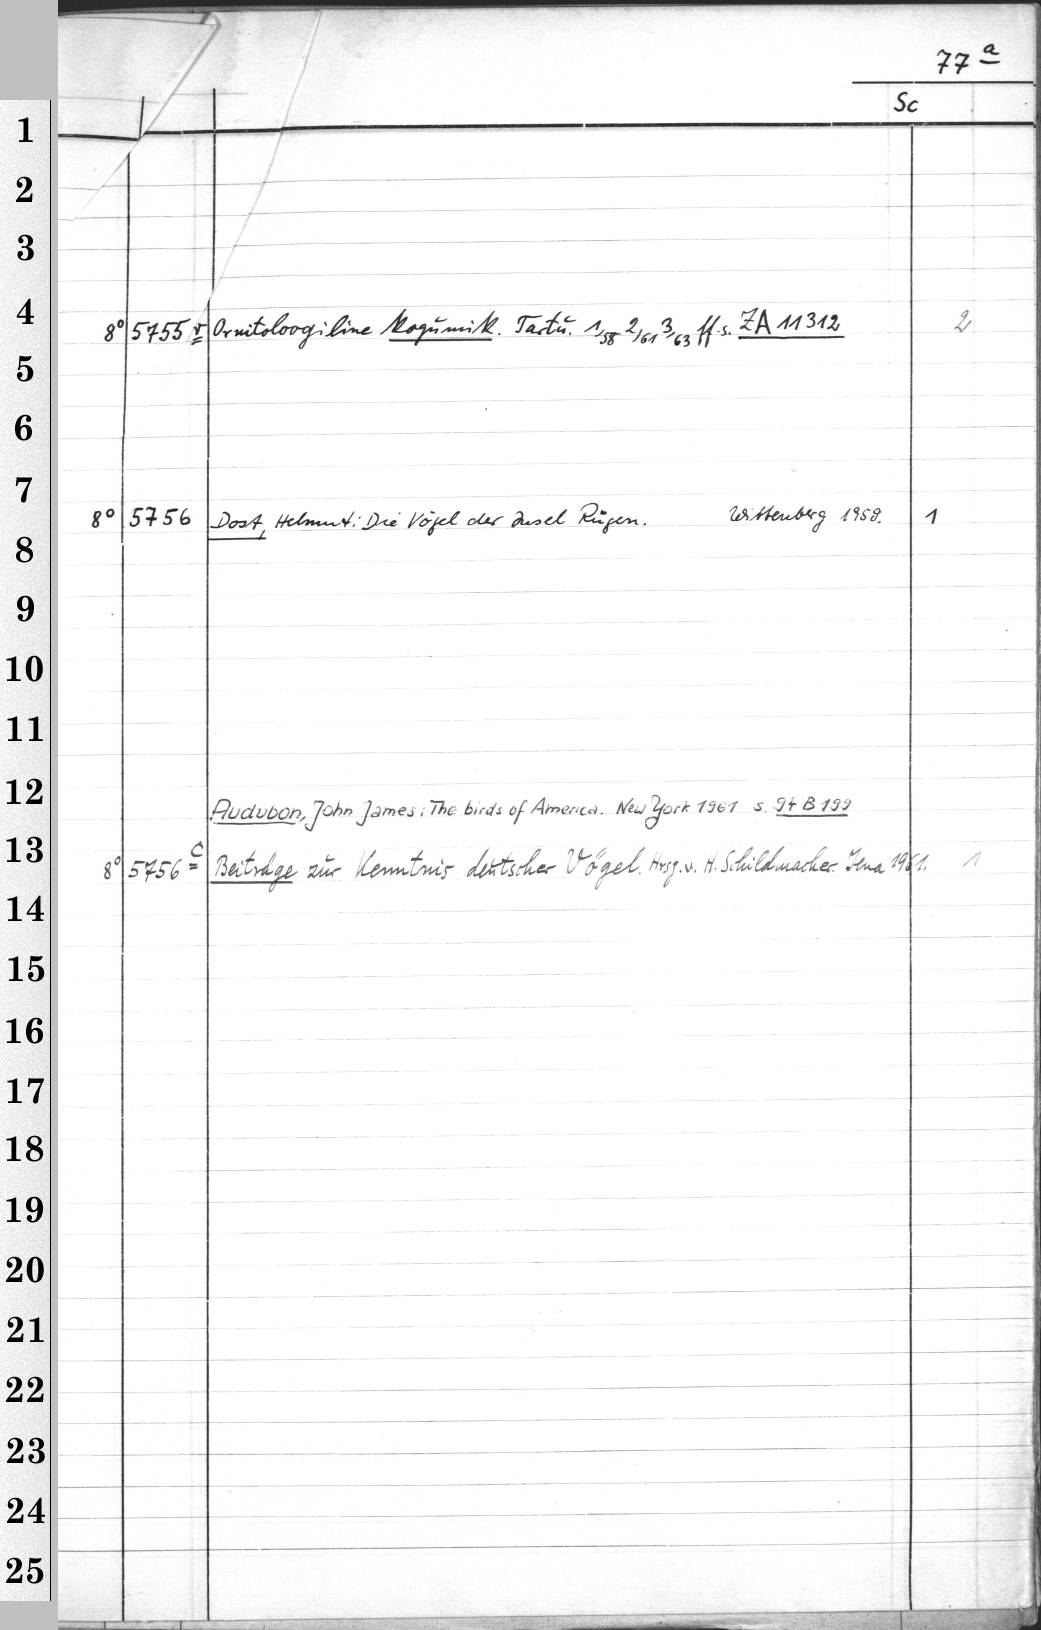 77 a
Sc
1
2
3
4
8° 5755 r Ornitoloogiline Kogumik. Tartu. 1/58 2/61 3/63 ff. s. ZA 11312 2
5
6
7
8° 5756 Dost, Helmut: Die Vögel der Insel Rügen. Wittenberg 1959. 1
8
9
10
11
12
Audubon, John James: The birds of America. New York 1961 s. 94 B 199
13
8° 5756 c Beiträge zur Kenntnis deutscher Vögel. Hrsg. v. H. Schildmacher. Jena 1961. 1
14
15
16
17
18
19
20
21
22
23
24
25